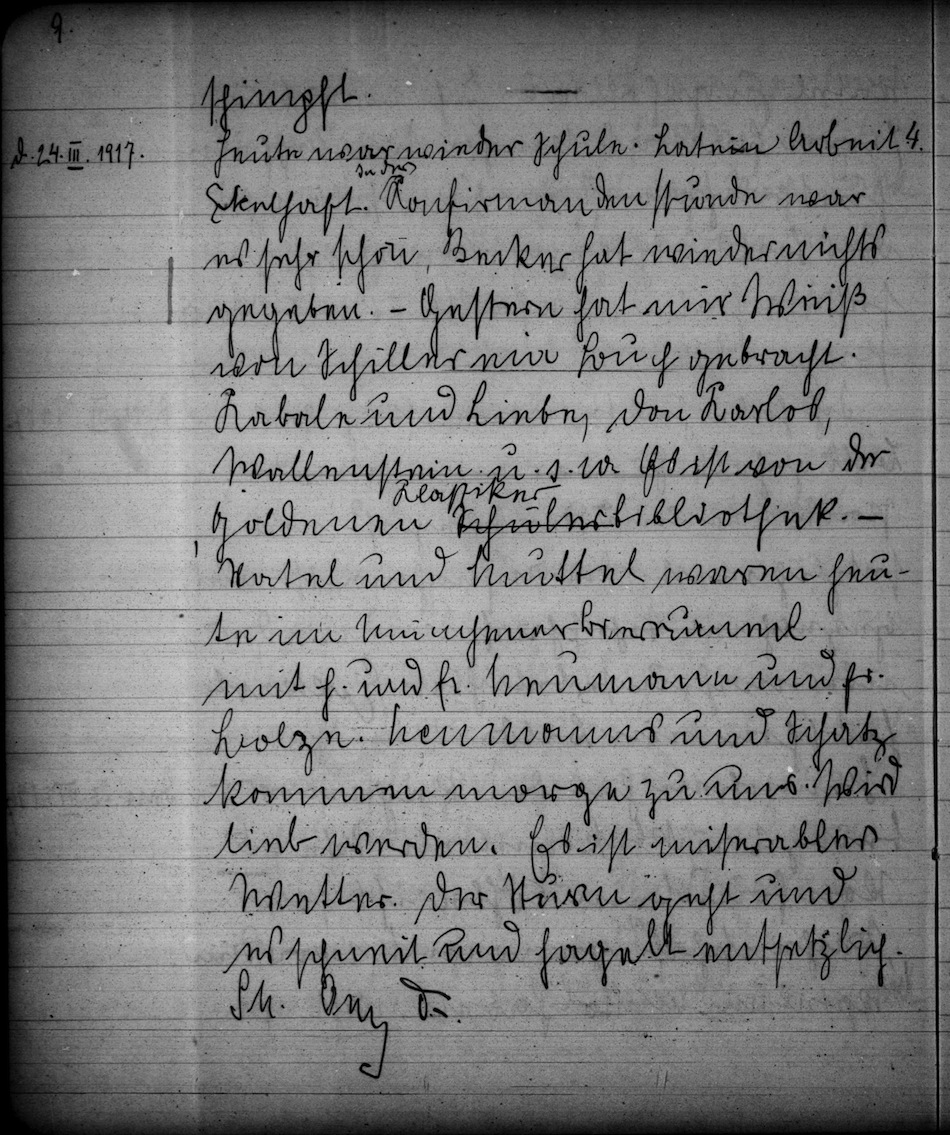 9.
schimpft. —
d. 24. III. 1917. Heute war wieder Schule. Latein Arbeit 4.
Ekelhaft. In der Konfirmandenstunde war
es sehr schön, Becker hat wieder nichts
gegeben. – Gestern hat mir Weiß
von Schiller ein Buch gebracht.
Kabale und Liebe, Don Karlos,
Wallenstein u. s. w. Es ist von der
Klassiker
Goldenen Schülerbibliothek. –
Vatel und Muttel waren heu-
te im Münchener
mit H. und Fr. Neumann und Fr.
Neumanns und Schatz
kommen morge zu uns. Wird
lieb werden. Es ist miserables
Wetter. Der Sturm geht und
es schneit und hagelt entsetzlich.